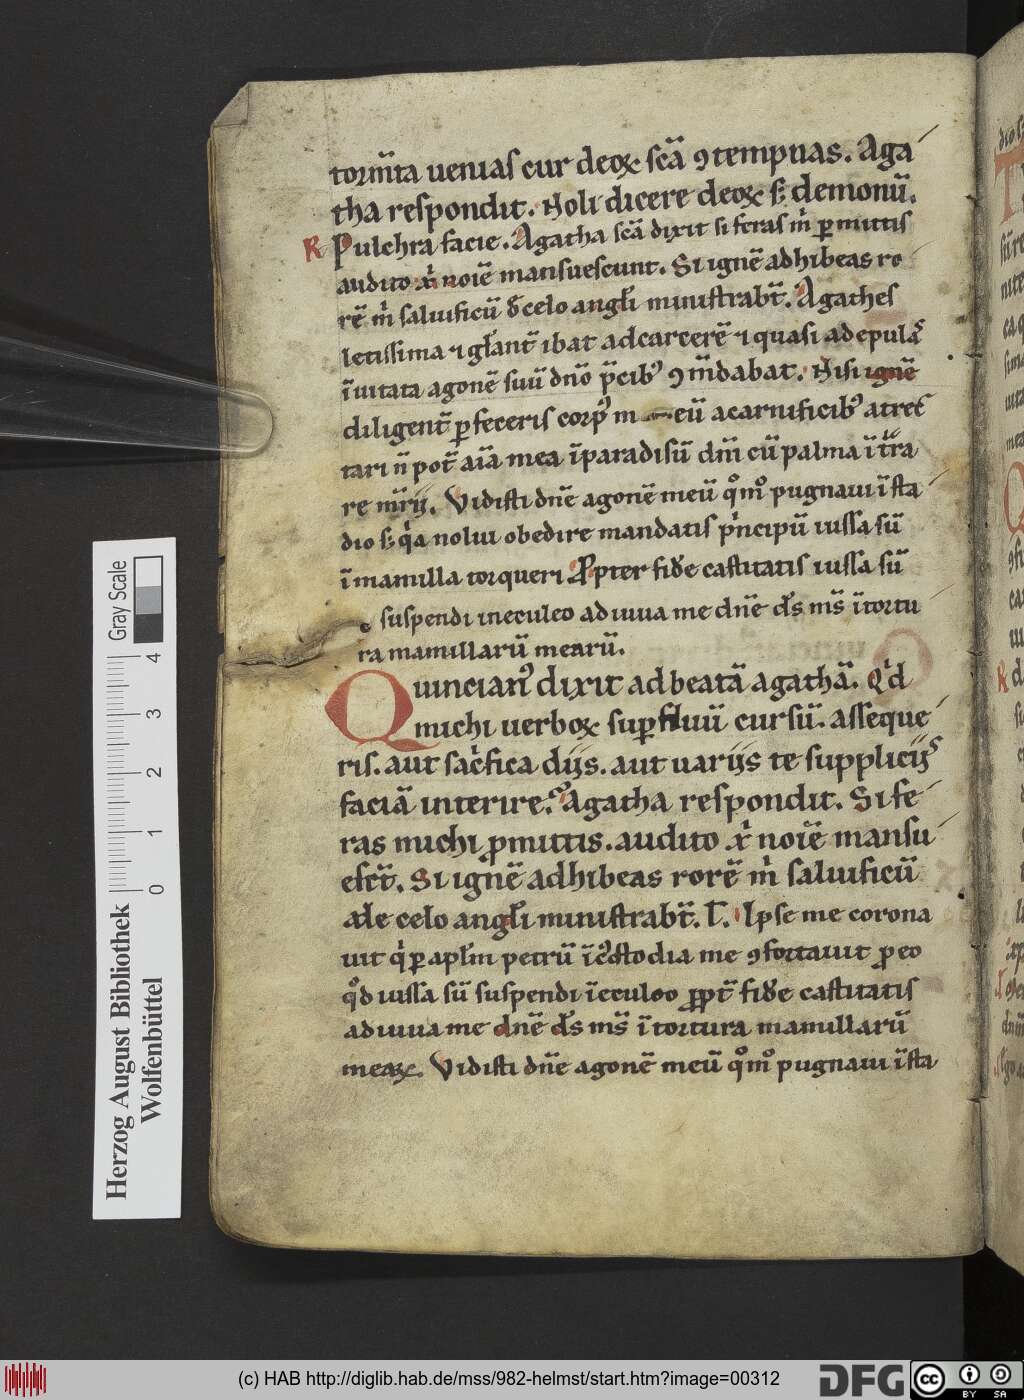 torm̄ta uenias cur deoꝝ scā ꝯtempnas. Aga
tha respondit. Noli dicere deoꝝ s; demonū.
R Pulchra facie. Agatha scā dixit si feras m̍ ꝓmittis
audito xp̄i noīe mansuescunt. Si ignē adhibeas ro
rē m̍ saluificū d̄ celo angłi ministrabt̄. Agathes
letissima ⁊ głant̄ ibat ad carcerē ⁊ quasi ad epulas
īuitata agonē suū dn̄o p̄cibꝰ ꝯm̄dabat. Nisi ignē
diligent̄ ꝑfeceris corpꝰ m eū a carnificibꝰ atrec
tari n̄ pot̄ aīa mea ī paradisū dn̄i cū palma īt̄ra
re mr̄ij. Vidisti dn̄e agonē meū qͦmͦ pugnaui ī sta
dio s; qͥa nolui obedire mandatis pͥncipū iussa sū
ī mamilla torqueri Ꝓpter fidē castitatis iussa sū
suspendi in eculeo adiuua me dn̄e ds̄ ms̄ ī tortu
ra mamillarū mearū.
Quincianꝰ dixit ad beatā agathā. Qͥd
michi uerboꝝ supfluū cursū. asseque
ris. aut sacͥfica dijs. aut uarijs te supplicijs
faciā interire. Agatha respondit. Si fe
ras michi ꝓmittis. audito xp̄i noīe mansu
esct̄. Si ignē adhibeas rorē m̍ saluificū
a de celo angłi ministrabt̄. Ipse me corona
uit qͥ ꝑ apłm petrū ī cꝰstodia me ꝯfortauit pro eo
qͦd iussa sū suspendi ī eculeo ꝓpt̄ fidē castitatis
adiuua me dn̄e ds̄ ms̄ ī tortura mamillarū
meaꝝ. Vidisti dn̄e agonē meū qͦmͦ pugnaui ī sta
Herzog August Bibliothek
Wolfenbüttel
Gray Scale
0 1 2 3 4
(c) HAB http://diglib.hab.de/mss/982-helmst/start.htm?image=00312
DFG
cc BY SA